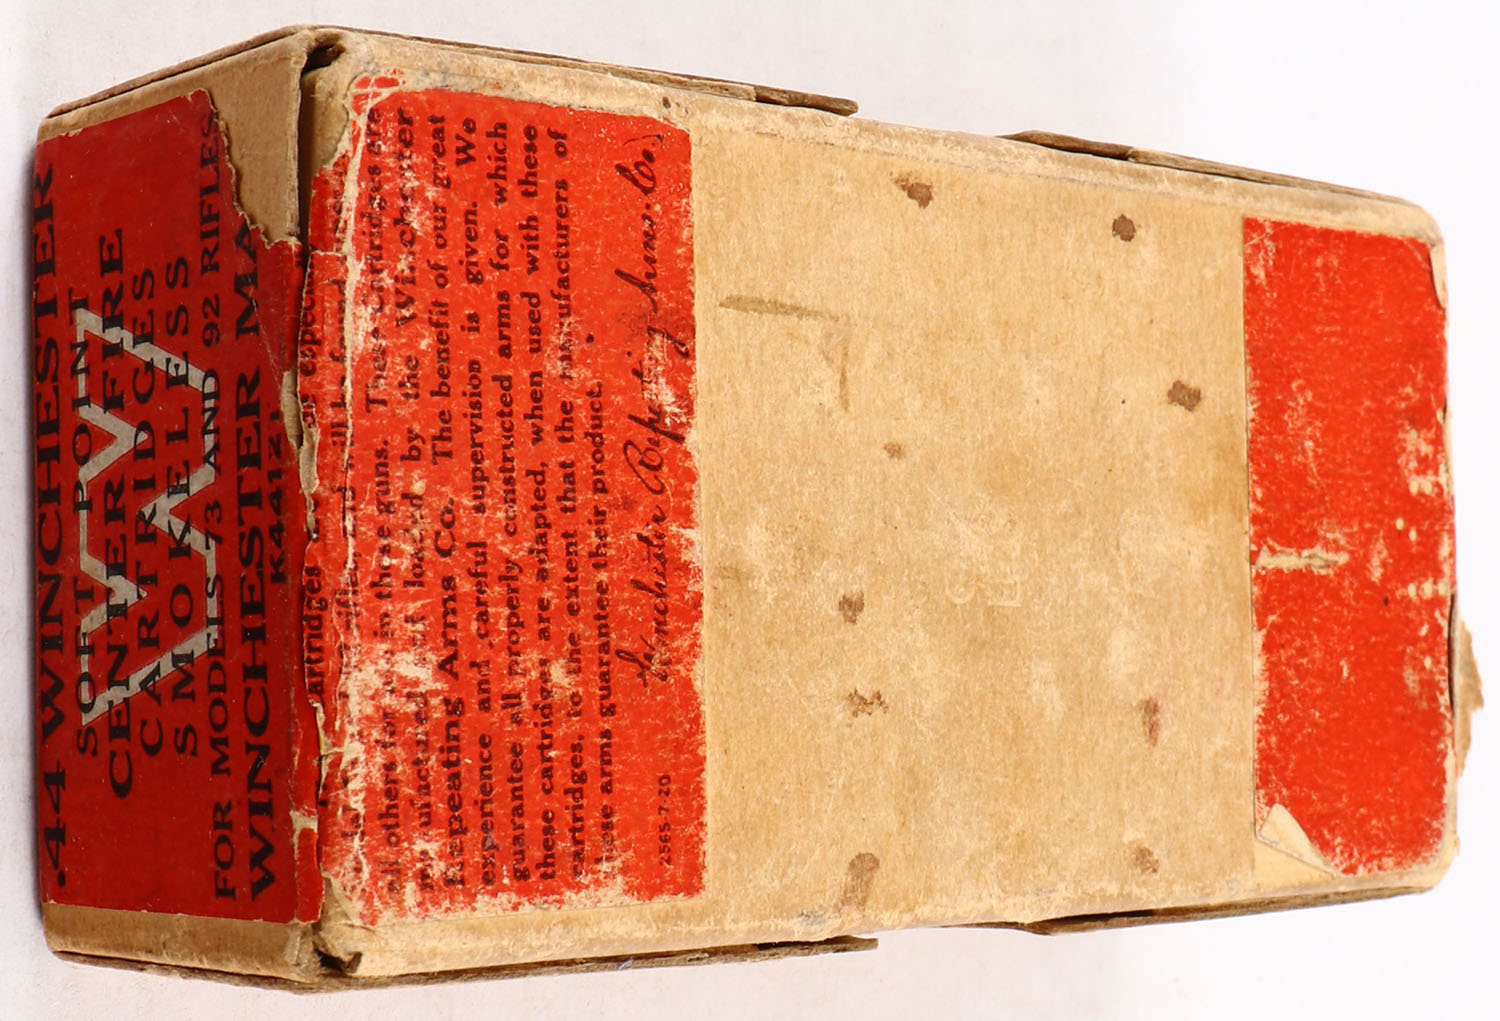 .44 WINCHESTER
SOFT POINT
CENTER FIRE
CARTRIDGES
SMOKELESS
FOR MODELS 73 AND 92 RIFLES
WINCHESTER MA
K4412
W
cartridges
all others for use in these guns. These cartridges are
manufactured and loaded by the Winchester
Repeating Arms Co. The benefit of our great
experience and careful supervision is given. We
guarantee all properly constructed arms for which
these cartridges are adapted, when used with these
cartridges, to the extent that the manufacturers of
these arms guarantee their product.
Winchester Repeating Arms Co.
2565-7-20